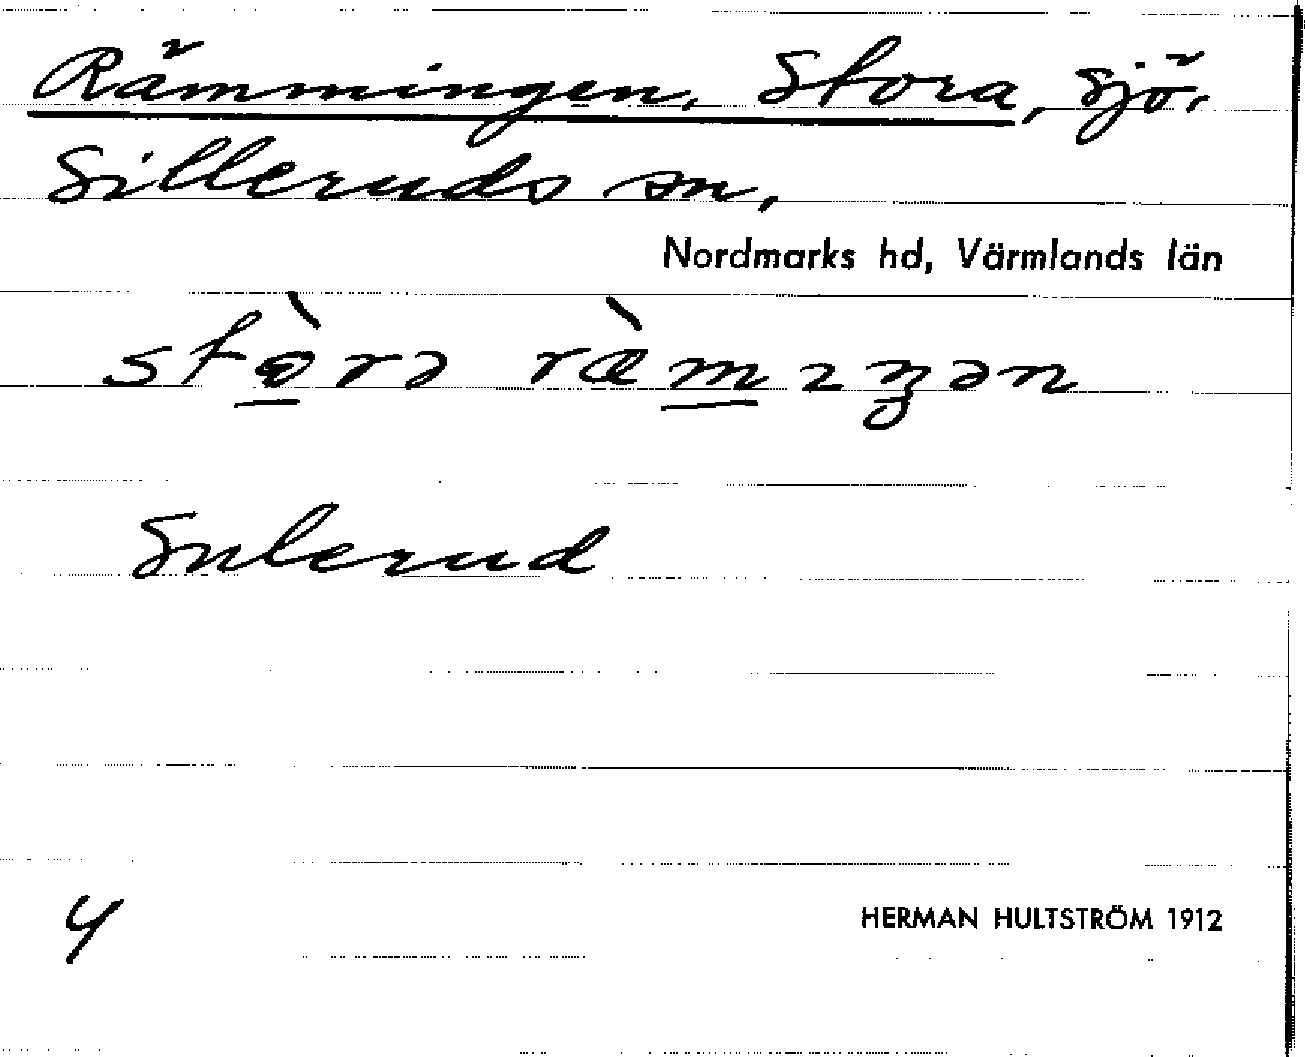 Rämmingen, Stora, sjö,
Silleruds sn,
Nordmarks hd, Värmlands län
stòrə ræ̀mɪŋən
Sulerud
4
HERMAN HULTSTRÖM 1912